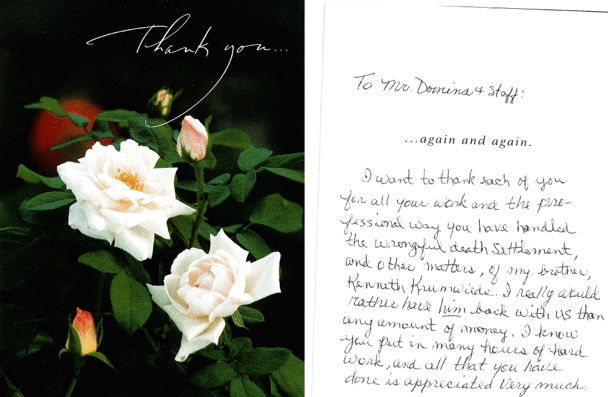 Thank you...
To Mr. Domina & Staff:
...again and again.
I want to thank each of you
for all your work and the pro-
fessional way you have handled
the wrongful death Settlement,
and other matters, of my brother,
Kenneth Krumwiede. I really would
rather have him back with us than
any amount of money. I know
you put in many hours of hard
work, and all that you have
done is appreciated very much.